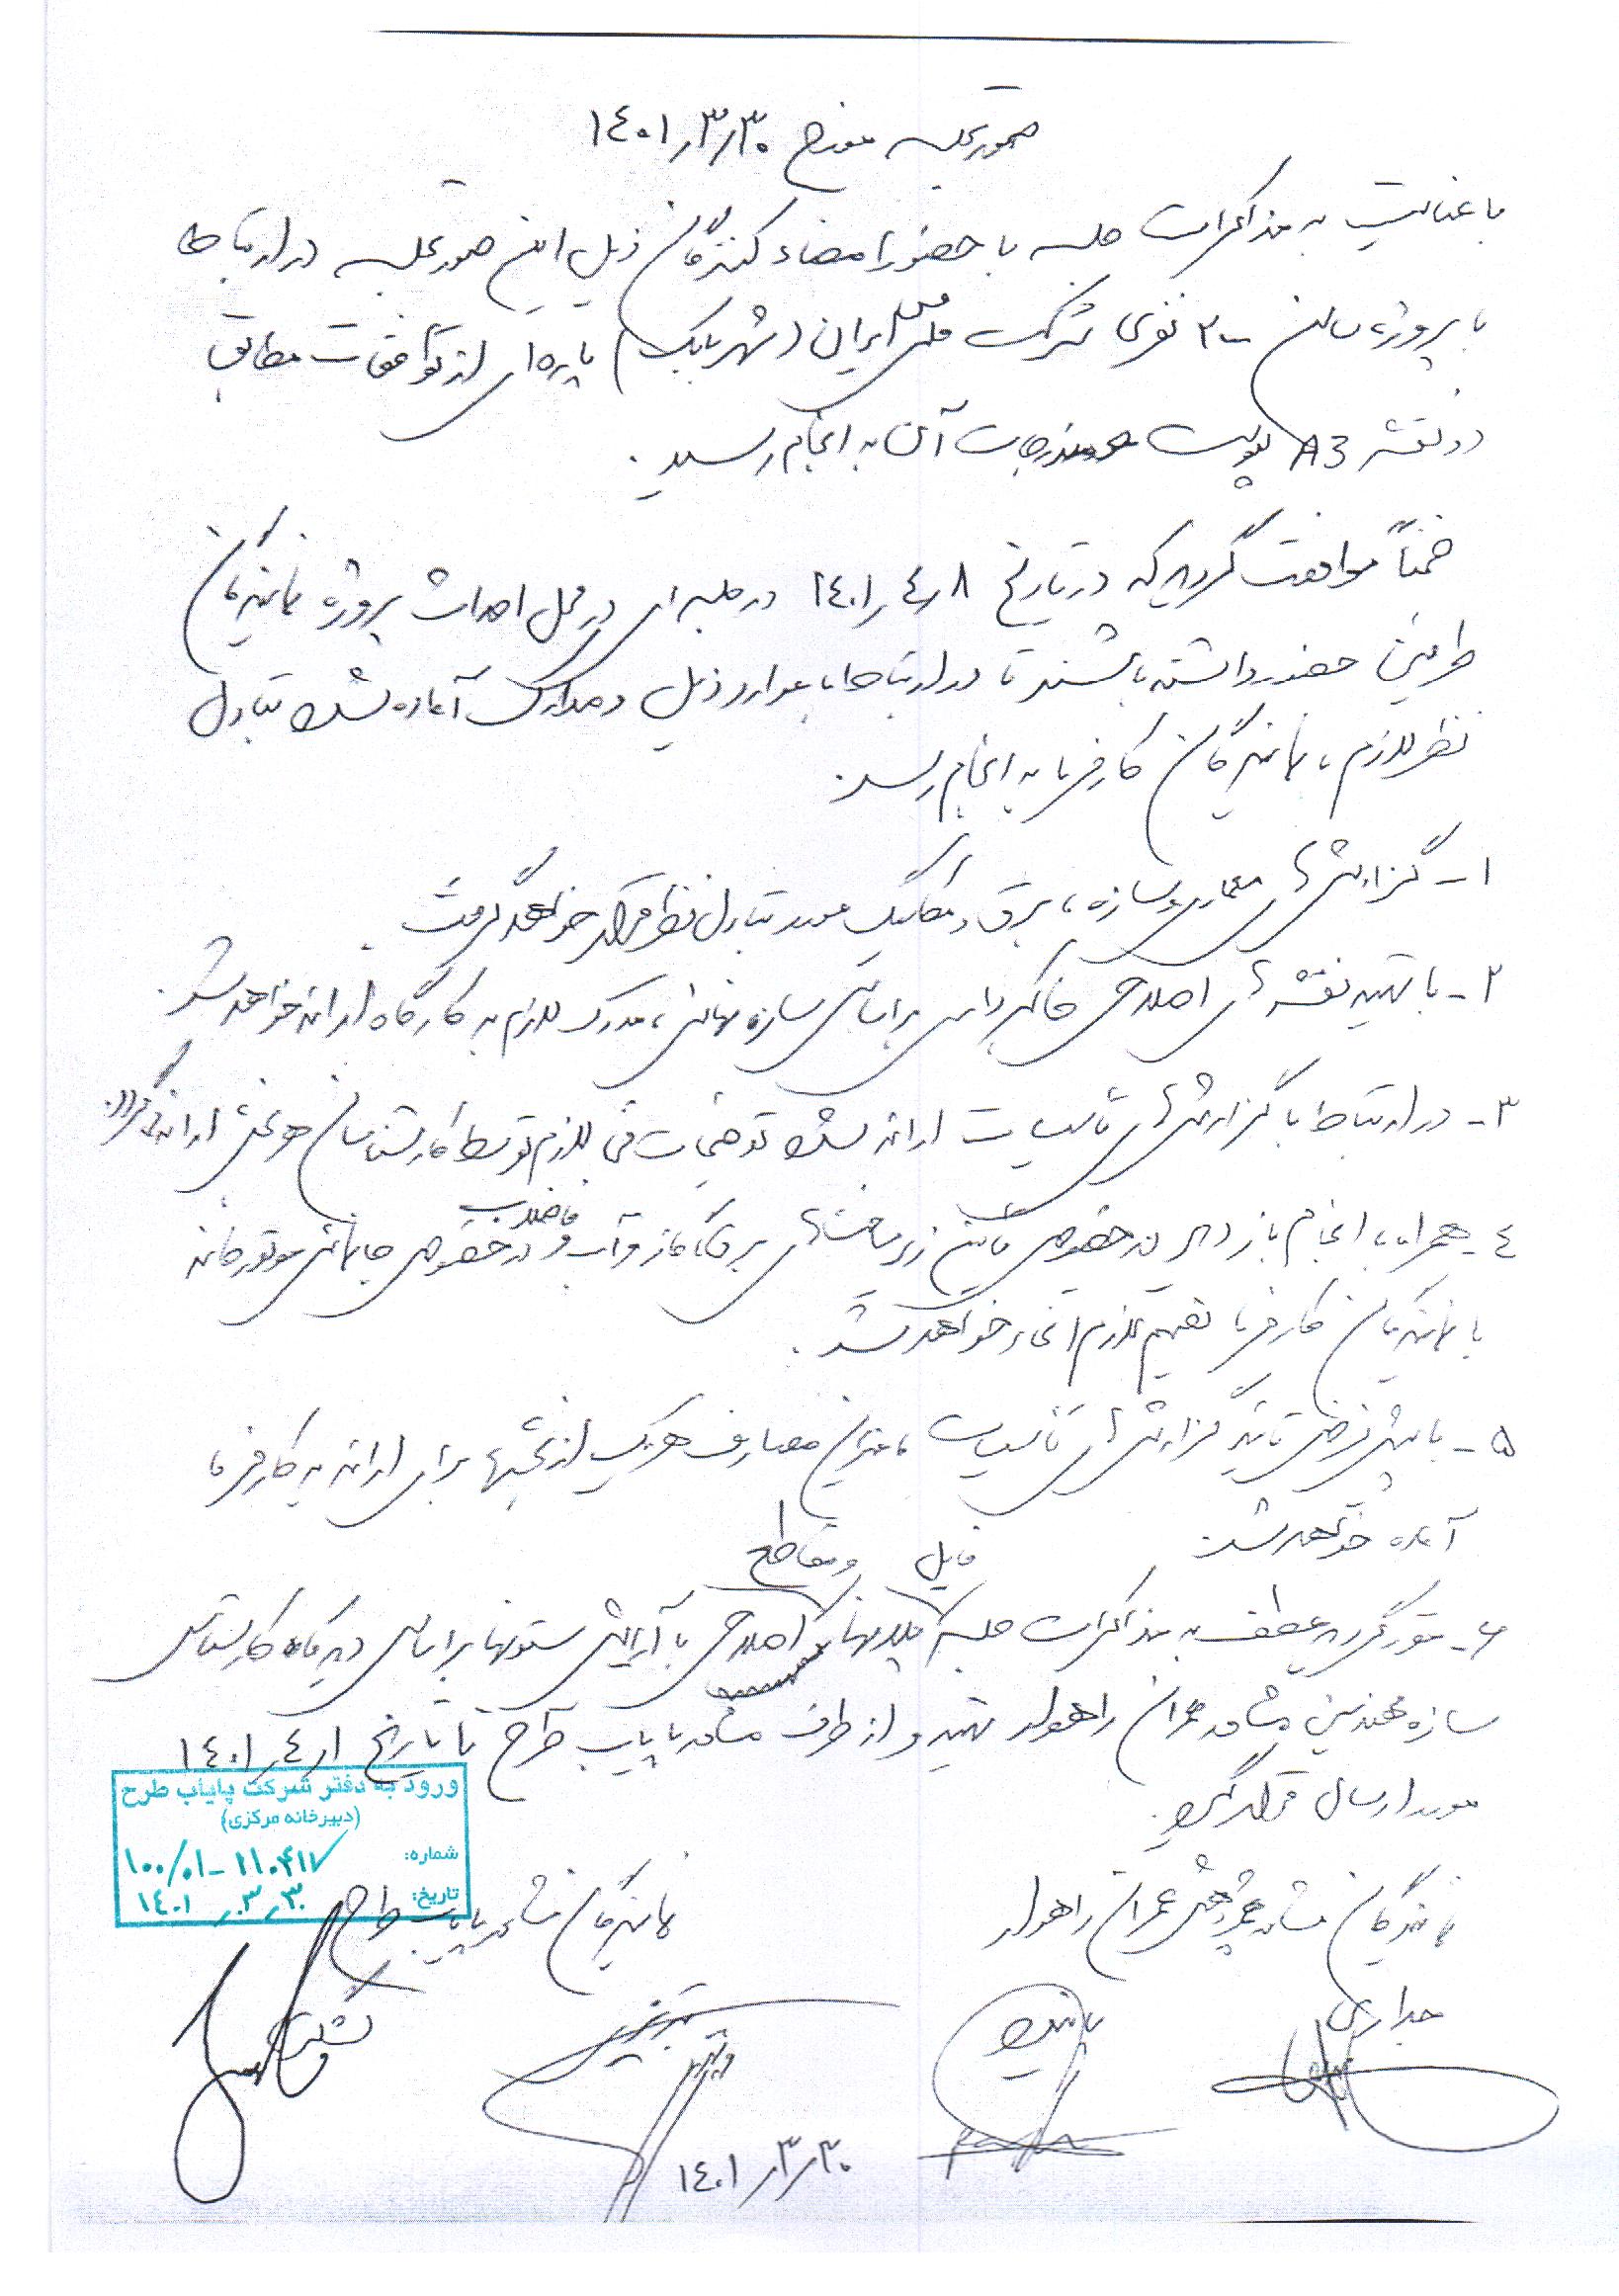 صورتجلسه مورخ ۱۴۰۱٫۳٫۳۰
با عنایت به مذاکرات جلسه با حضور امضاء کنندگان ذیل این صورتجلسه در ارتباط
با پروژه سالن ۲۰۰ نفری شرکت ملی مس ایران (شهربابک) پاره‌ای از توافقات مطابق
دو نقشه A3 پیوست مندرجات آن به انجام رسید.
ضمناً موافقت گردید که در تاریخ ۱۴۰۱٫۴٫۸ در جلسه‌ای در محل احداث پروژه نمایندگان
طرفین حضور داشته باشند تا در ارتباط با موارد ذیل و مدارک آماده شده تبادل
نظر لازم با نمایندگان کارفرما به انجام رسد.
۱- گزارش‌های معماری و سازه، برق و مکانیک مورد تبادل نظر قرار خواهد گرفت.
۲- با تهیه نقشه‌های اصلاحی خاکبرداری بر اساس سازه نهائی، مدرک لازم به کارگاه ارائه خواهد شد.
۳- در ارتباط با گزارش‌های تاسیسات ارائه شده توضیحات فنی لازم توسط کارشناسان هر بخش ارائه گردد.
۴- همراه با انجام بازدید در خصوص تامین زیرساخت‌های برق، گاز و آب و فاضلاب و در خصوص جانمائی موتورخانه
با نمایندگان کارفرما تفهیم لازم انجام خواهد شد.
۵- با پیش فرض تایید گزارش‌های تاسیسات، میزان مصارف هر یک از بخشها برای ارائه به کارفرما
آماده خواهد شد.
۶- مقرر گردید عطف به مذاکرات جلسه فایل پلانها و مقاطع اصلاحی با آرایش ستونها بر اساس دیدگاه کارشناس
سازه مهندسین مشاور عمران راهوار تهیه و از طرف مشاور پایاب طرح تا تاریخ ۱۴۰۱٫۴٫۱
مورد ارسال قرار گیرد.
ورود به دفتر شرکت پایاب طرح
(دبیرخانه مرکزی)
شماره: ۱۰۰/۰۱-۱۱۰۴۱۷
تاریخ: ۱۴۰۱٫۳٫۳۰
نمایندگان مشاور عمران راهوار
نمایندگان مشاور پایاب طرح
۱۴۰۱٫۳٫۳۰